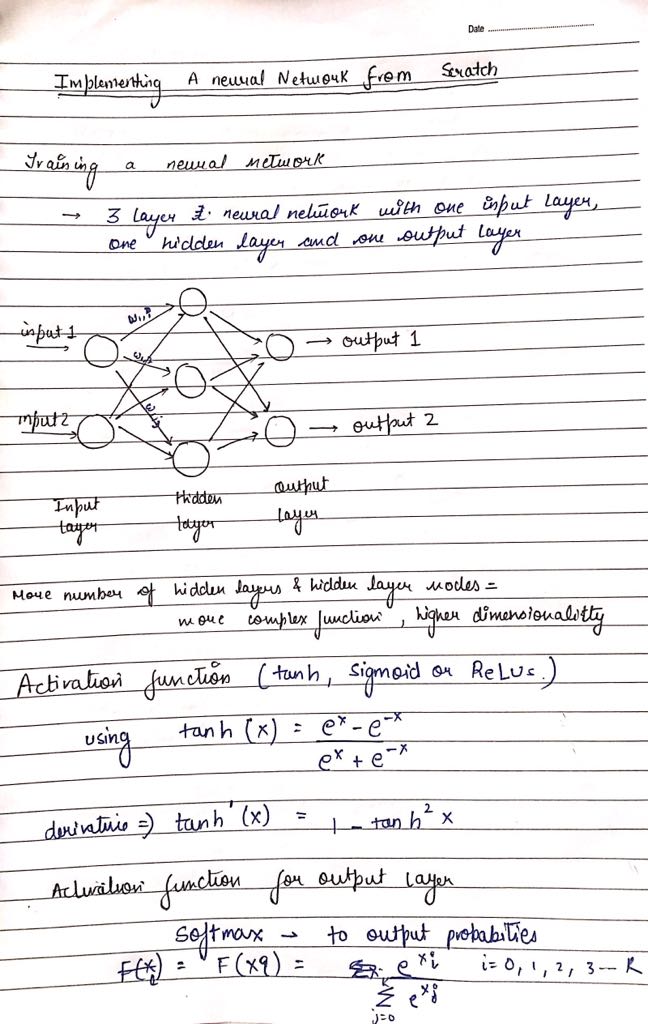 Date
Implementing A neural Network from Scratch
Training a neural network
→ 3 layer neural network with one input layer,
one hidden layer and one output layer
input 1
input 2
→ output 1
→ output 2
Input layer
Hidden layer
output layer
More number of hidden layers & hidden layer nodes =
more complex function, higher dimensionalitty
Activation function (tanh, Sigmoid or ReLUs.)
using tanh (x) = e^x - e^-x / e^x + e^-x
derivative => tanh'(x) = 1 - tanh² x
Activation function for output layer
Softmax → to output probabities
F(xi) = e^xi / Σ j=0 k e^xj i = 0, 1, 2, 3 -- k